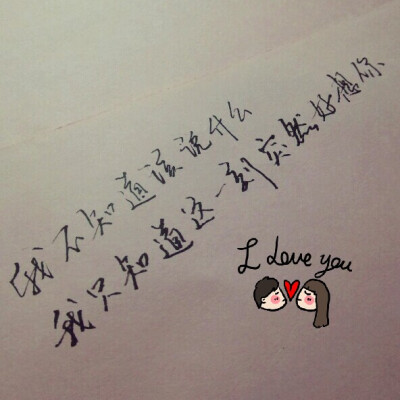 我不知道该说什么
我只知道这一刻突然好想你
I Love you